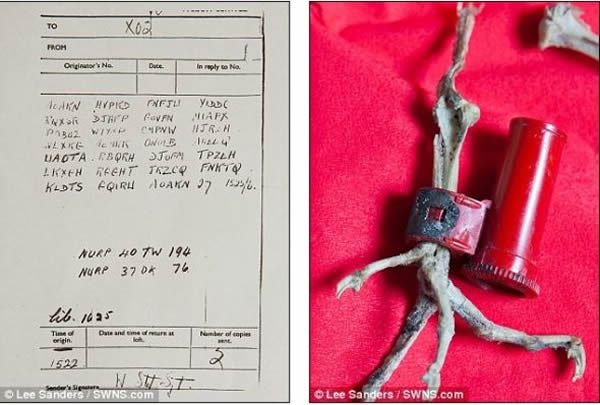 TO X02
FROM
Originator's No. Date. In reply to No.
AOAKN HVPKD FNFJU YIDDC
DJHFP GOVFN MIAPX
PABUZ WYYNP CMPNW HJRZH
NLXKG MEMKK ONOIB
UAOTA RBQRH DJOFM TPZEH
LKXGH RGGHT JRZCQ FNKTQ
KLDTS GQIRU AOAKN 27 1525/6.
NURP 40 TW 194
NURP 37 DK 76
lib. 1625
Time of origin. Date and time of return at loft. Number of copies sent.
1522 2
Sender's Signature
© Lee Sanders / SWNS.com
© Lee Sanders / SWNS.com